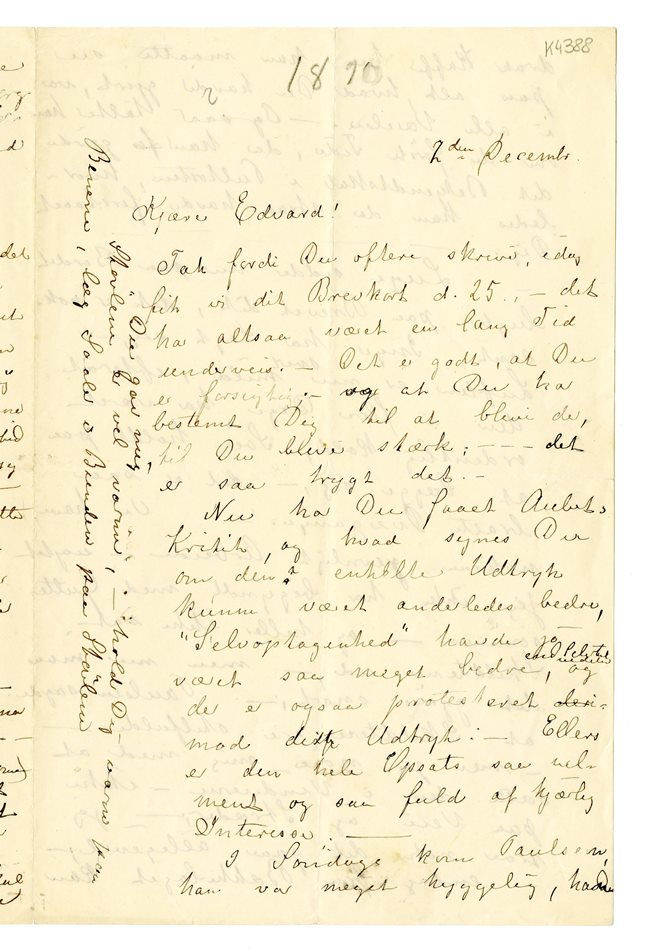 K4388
1890
2den Decembr.
Kjære Edvard!
Tak fordi Du oftere skriver, idag
fik vi dit Brevkort d. 25., – det
har altsaa været en lang Tid
underveis. – Det er godt, at Du
er forsigtig; – og at Du har
bestemt Dig til at blive der,
til Du bliver stærk; – – – det
er saa – trygt det. –
Nu har Du faaet Aubets
Kritik, og hvad synes Du
om den? enkelte Udtryk
kunne været anderledes bedre,
"Selvoptagenhed" havde jo
været saa meget bedre, end
og
der er ogsaa protesteret
mod dette Udtryk: – Ellers
er den hele Opsats saa vel-
ment og saa fuld af kjærlig
Interesse. –
I Søndags kom Paulsen,
han var meget hyggelig, havde
Du gav mig,
Støvlene er vel varm, – hold Dig varm paa
Benene, læg Saaler i Bunden paa Støvlene